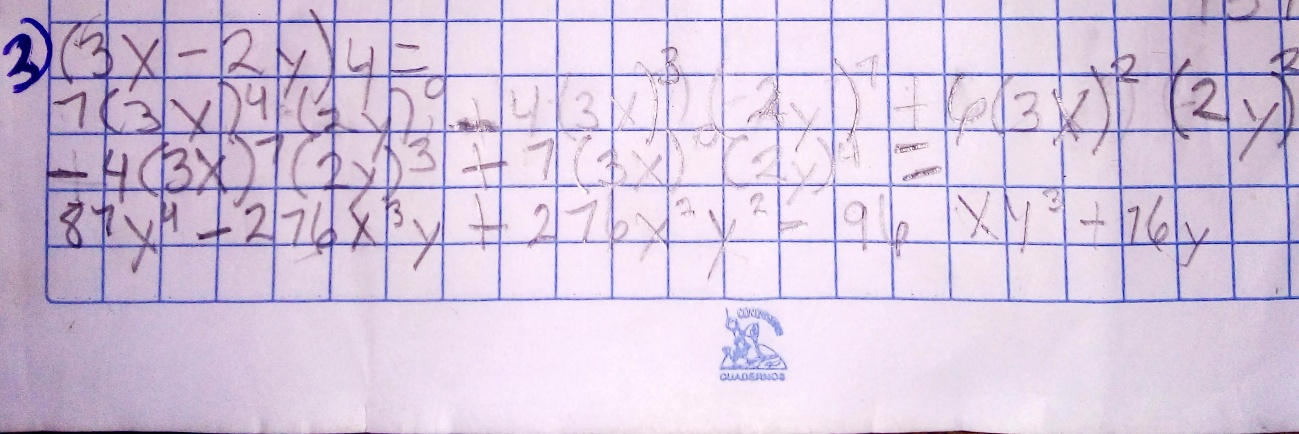 3) (3x - 2y)4 =
1(3x)⁴ (2y)⁰ - 4(3x)³ (2y)¹ + 6(3x)² (2y)²
- 4(3x)¹ (2y)³ + 1(3x)⁰ (2y)⁴ =
81y⁴ - 216x³y + 216x²y² - 96 xy³ + 16y
CUADERNOS